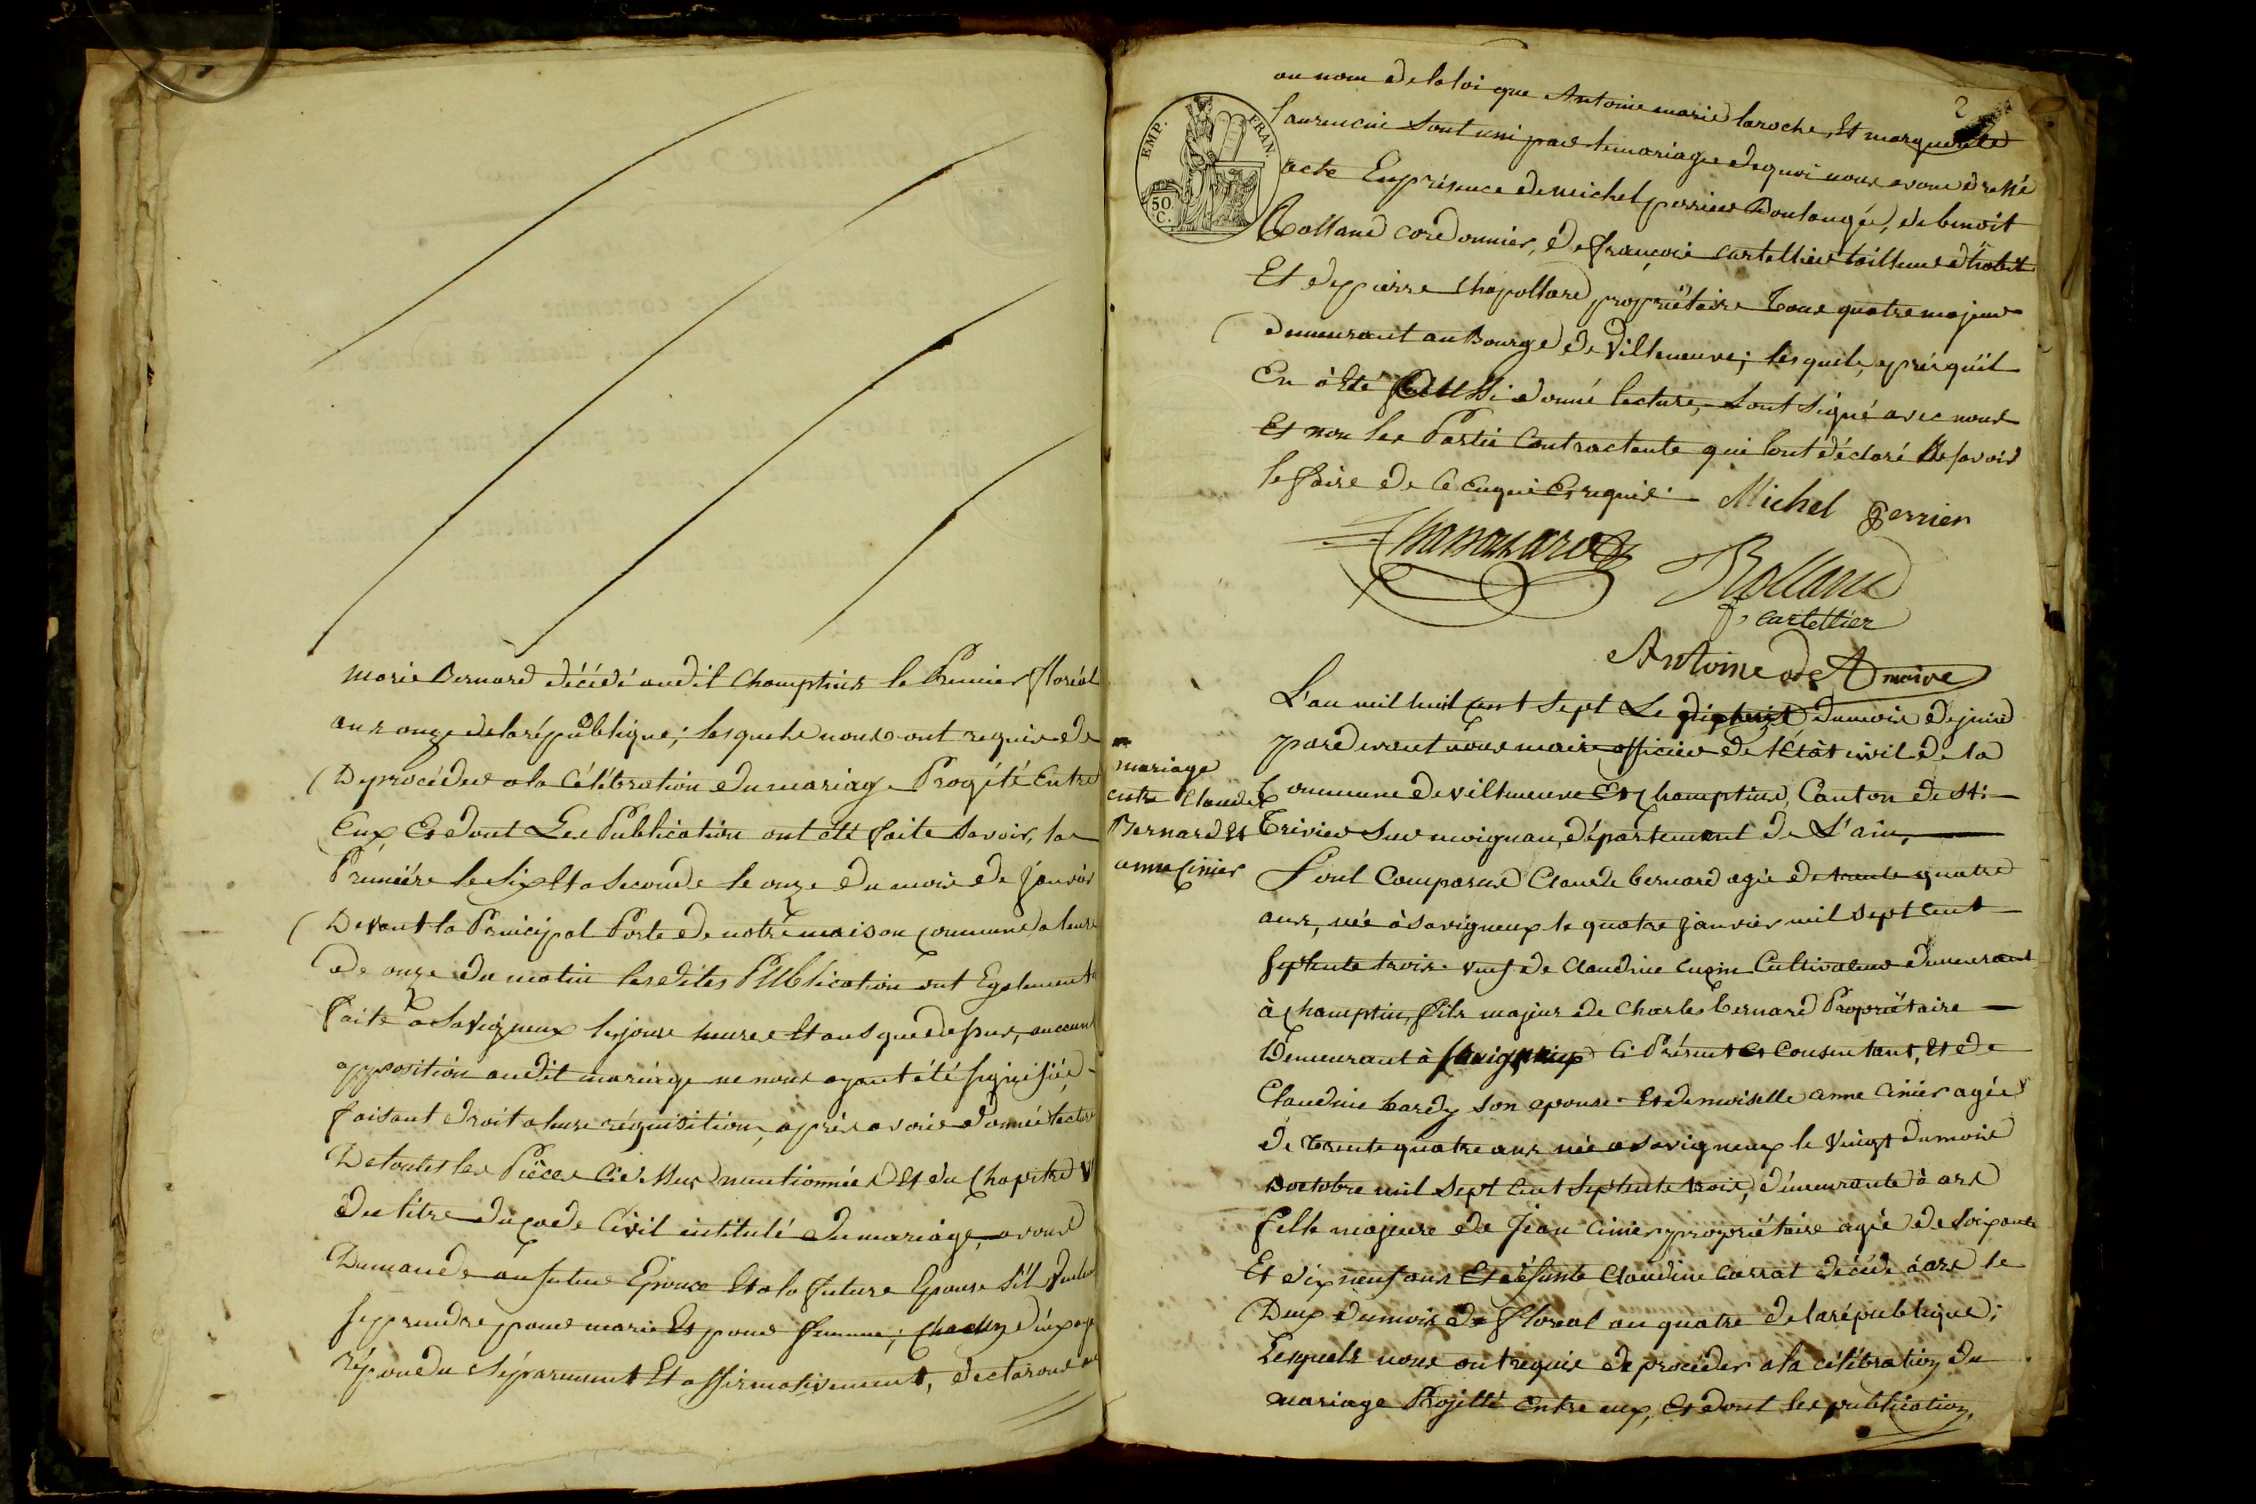 marie Bernard décédé audit Champtins le Premier floréal
ans onze de la république; lesquels nous ont requis de
De procéder a la Célébration du mariage Progété Entre
Eux, Et dont Les Publication ont été faite savoir, la
Première le six Et a seconde le onze du mois de janvier
Devant la Principal Porte de notre maison Commune a leure
de onze du matin lesdites Publication ont Egalement
faite a Savigneux les jours heures Et ans que dessus, aucune
opposition audit mariage ne nous ayant été signifiée
faisant droit a leurs réquisition, après avoir donnée lecture
De toutes les Pièces Cidessus mentionnées Et du Chapitre V
du titre du Code Civil intitulé du mariage, avons
Demandé au futur Epouse Et a la future Epouse s'il veulent
se prendre pour marie Et pour femme; Chacun
répondu séparement Et affirmativement, declarons
2
EMP. FRAN.
50 C.
au nom de la loi que Antoine marie laroche, Et marguerite
laurencin sont uni par le mariage de quoi nous avons dressé
acte En présence de michel perrier Boulangé, de benoît
Rolland cordonnier, de françois cartellier tailleur d'habit
Et de pierre Chapolard propriétaire tous quatre majeur
demeurant au Bourg de de Villeneuve; lesquels, après qu'il
En a Eté aussi donné lecture, sont signé avec nous
Et non les Partie Contractante qui l'ont déclaré ne savoir
le faire de Ce Enqui Et requis. Michel Perrier
Rolland
f, cartellier
Antoine maire
L'an mil huit Cent sept Le dixhuit du mois de juin
pardevant nous maire officier de l'Etàt civil de la
Commune de villeneuve Et Champtins, Canton de St:
Trivier Sur moignan, département de L'ain,
mariage
entre Claude
Bernard Et
anne Cinier
Sont Comparus Claude bernard agée de trente quatre
ans, née à savigneux le quatre janvier mil sept Cent
septente trois veuf de Claudine Cultivateur demeurant
à Champtin, fils majeur de Charles bernard Propriétaire
Demeurant à Savigneux Ci Présent Et Consentant, Et de
Claudine bardy son epouse Et demoiselle anne Cinier agée
de trente quatre ans née a savigneux le vingt du mois
doctobre mil sept Cent septente trois, démeurante à ars
fille majeure de Jean Cinier propriétaire agée de soixante
Et dix neuf ans Et défunte Claudine Carrat décédé à ars le
Deux du mois de floréal an quatre de la république;
Lesquels nous ont requis de procéder a la célébration du
mariage Projetté Entre eux, Et dont les publication,